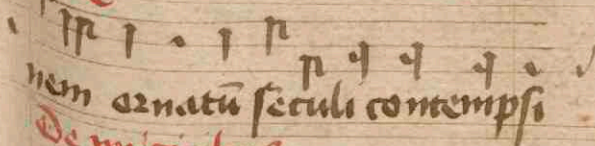 nem ornatū seculi contempsi
De